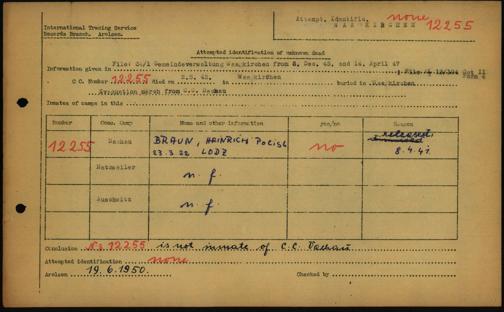 International Tracing Service
Records Branch. Arolsen.
Attempt. Identific. none
WAAKIRCHEN 12255
Attempted identification of unknown dead
File: 34/1 Gemeindeverwaltung Waakirchen from 5. Dec. 45. and 14. April 47
Information given in
C.C. Number 12255 died on 2.5. 45. in Waakirchen buried in Waakirchen
Evacuation march from C.C. Dachau
Inmates of camps in this
Number Conc. Camp Name and other information yes/no Reason
12255 Dachau BRAUN, HEINRICH POLISH no released
23.3.22 LODZ 8.4.41
Natzweiler n. f.
Auschwitz n. f.
Conclusion No 12255 is not inmate of C.C. Dachau
Attempted identification none
Arolsen 19.6.1950. Checked by